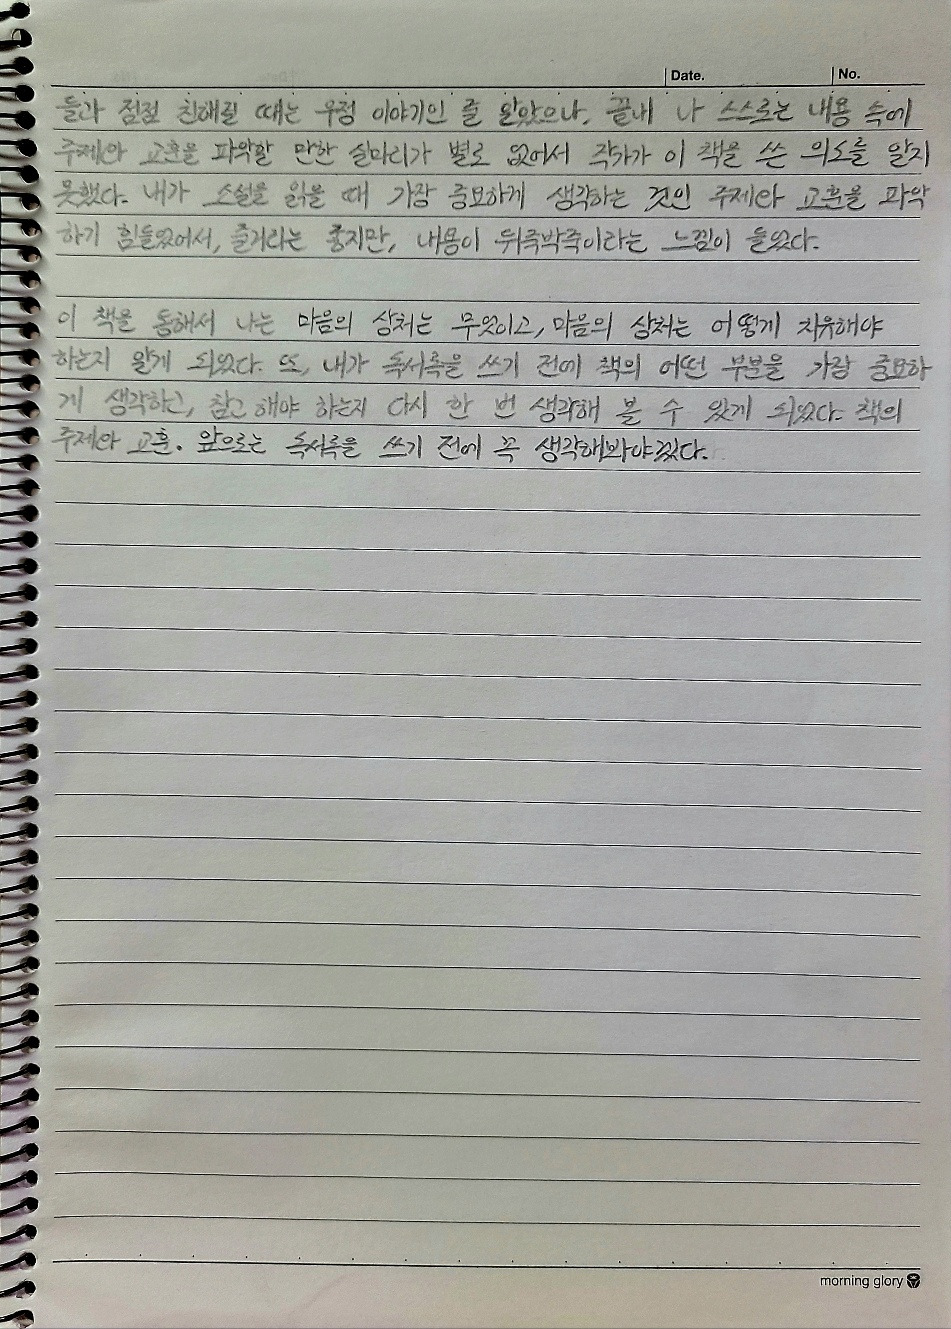 Date. No.
들과 점점 친해질 때는 우정 이야기인 줄 알았으나, 끝내 나 스스로는 내용 속에
주제와 교훈을 파악할 만한 실마리가 별로 없어서 작가가 이 책을 쓴 의도를 알지
못했다. 내가 소설을 읽을 때 가장 중요하게 생각하는 것인 주제와 교훈을 파악
하기 힘들었어서, 줄거리는 좋지만, 내용이 뒤죽박죽이라는 느낌이 들었다.
이 책을 통해서 나는 마음의 상처는 무엇이고, 마음의 상처는 어떻게 치유해야
하는지 알게 되었다. 또, 내가 독서록을 쓰기 전에 책의 어떤 부분을 가장 중요하
게 생각하고, 참고해야 하는지 다시 한 번 생각해 볼 수 있게 되었다. 책의
주제와 교훈. 앞으로는 독서록을 쓰기 전에 꼭 생각해봐야겠다.
morning glory